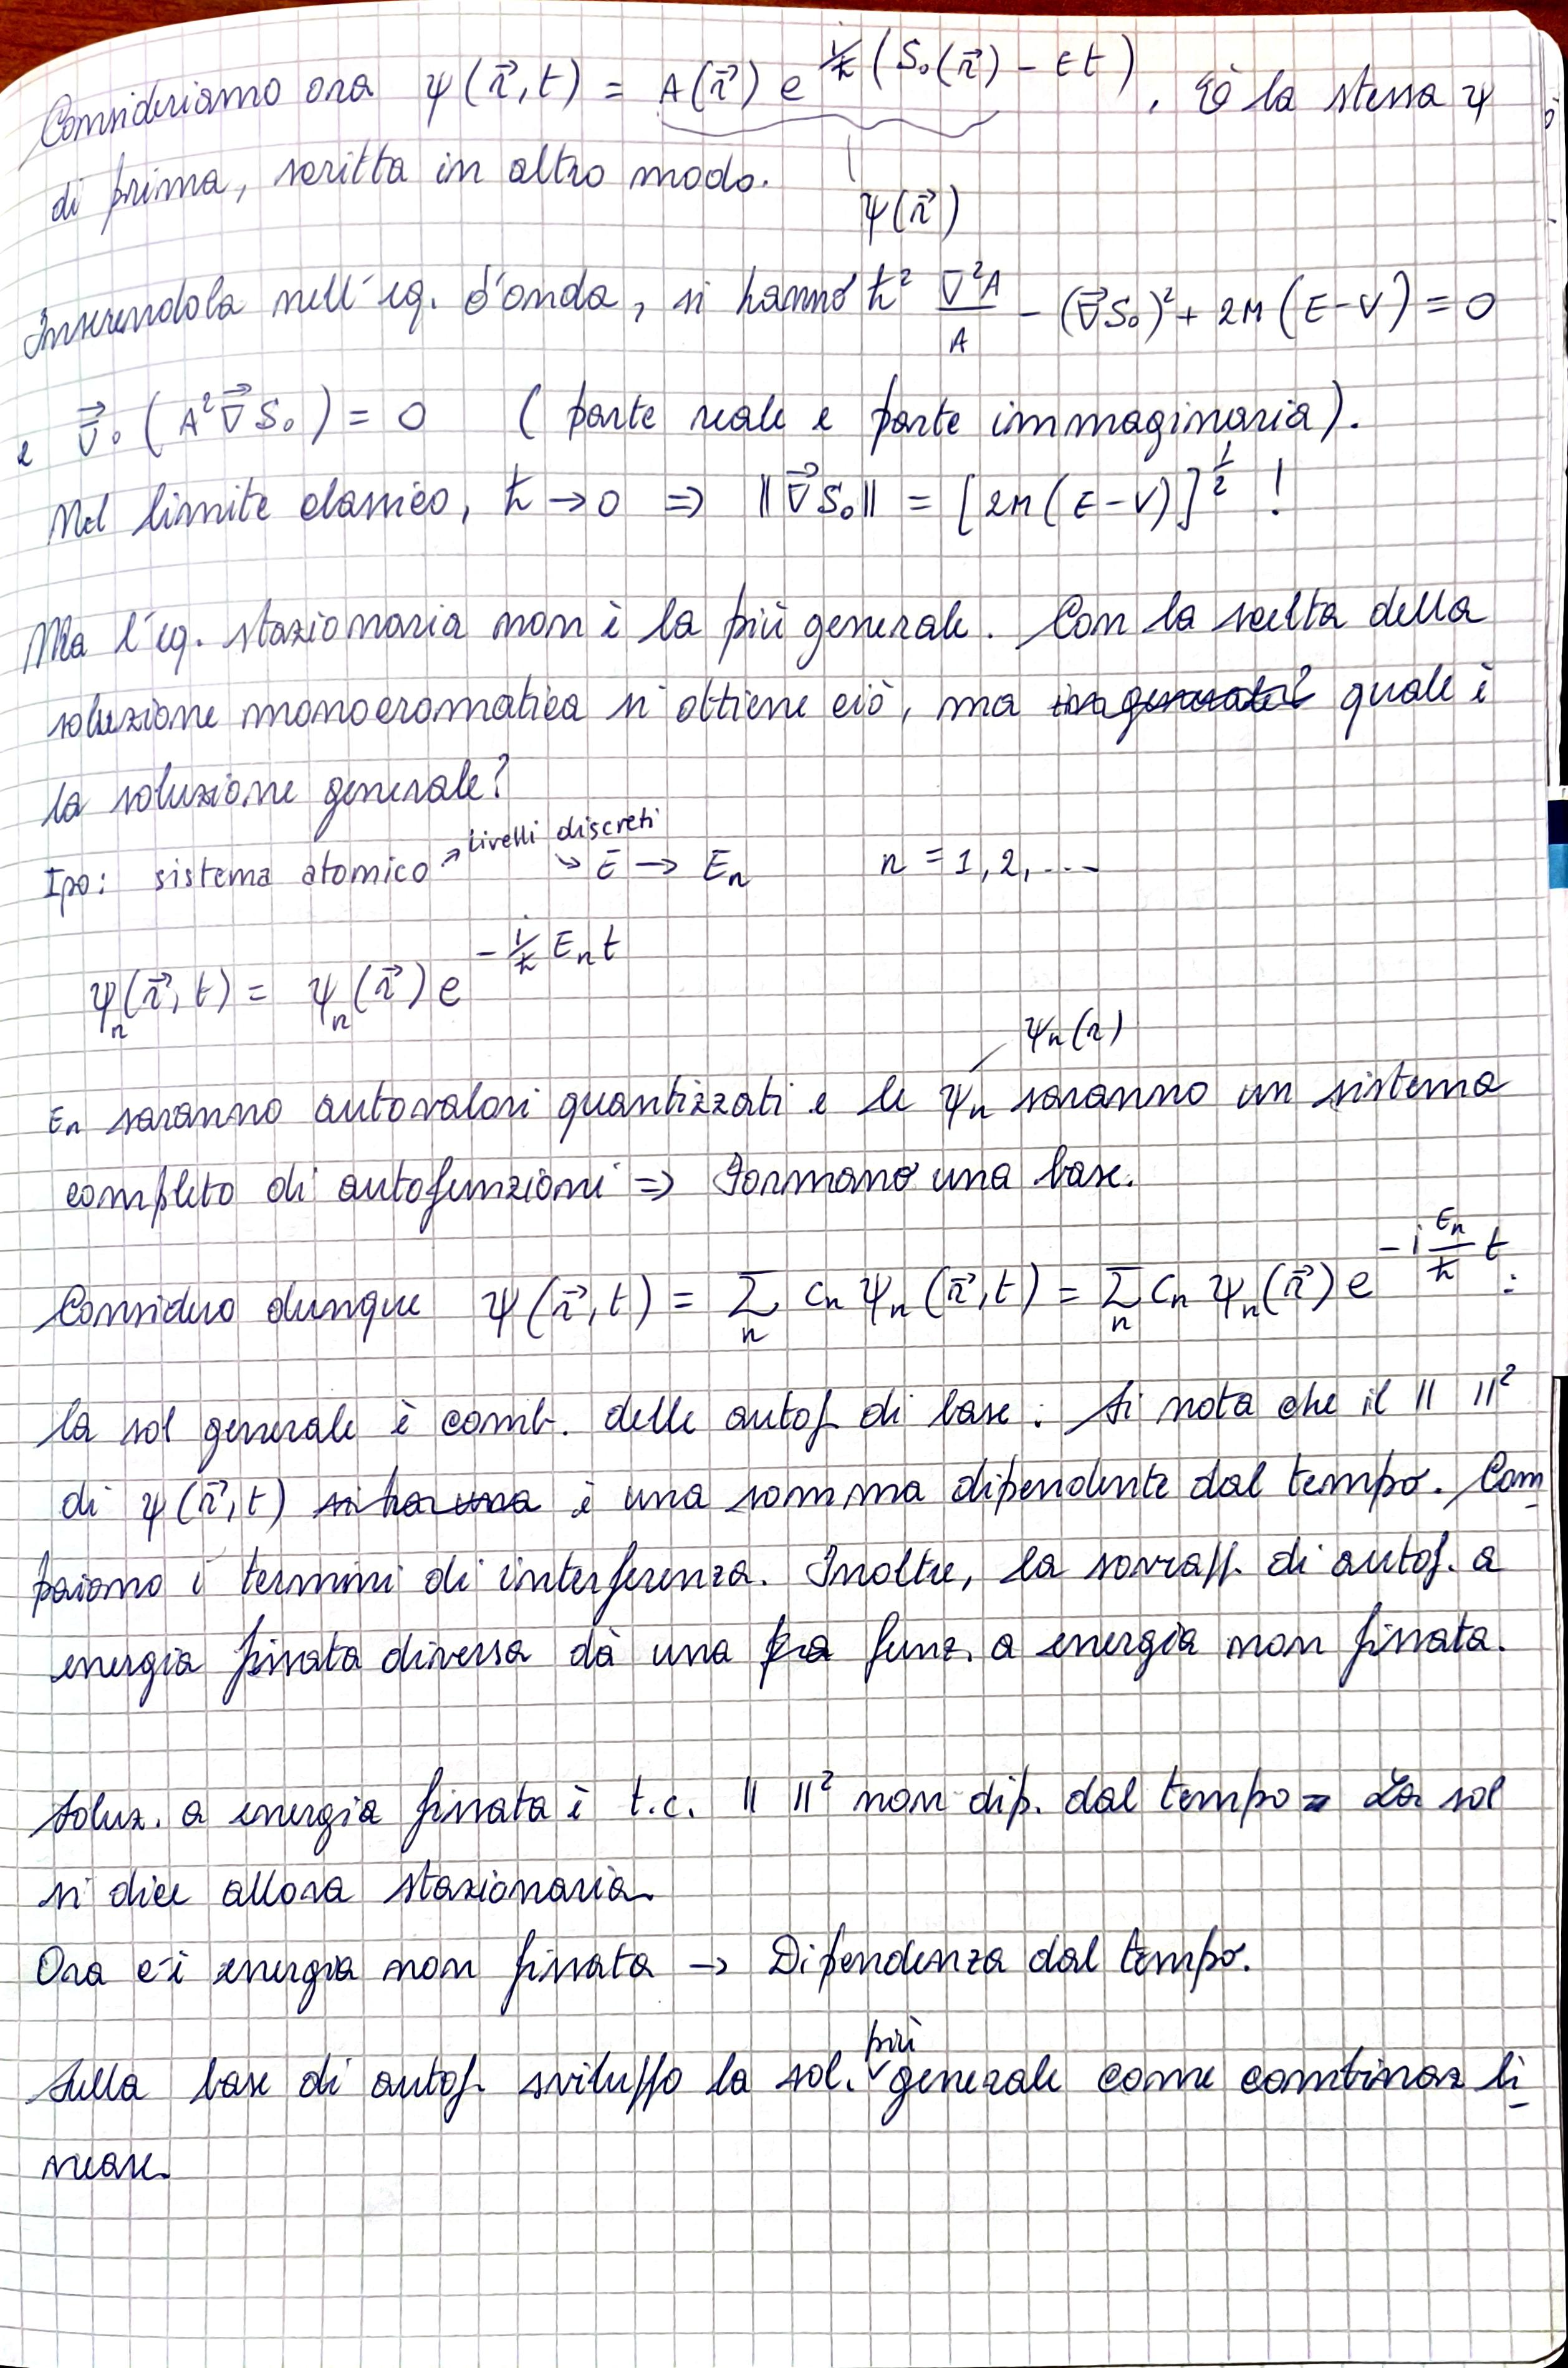 Consideriamo ora ψ(r⃗,t) = A(r⃗) e^{i/ħ (S₀(r⃗) - Et)}. È la stessa ψ
di prima, scritta in altro modo.
ψ(r⃗)
Inserendola nell'eq. d'onda, si hanno ħ² ∇²A/A - (∇⃗S₀)² + 2M(E-V) = 0
e ∇⃗·(A²∇⃗S₀) = 0 (parte reale e parte immaginaria).
Nel limite classico, ħ → 0 ⇒ ||∇⃗S₀|| = [2M(E-V)]^{1/2} !
Ma l'eq. stazionaria non è la più generale. Con la scelta della
soluzione monocromatica si ottiene ciò, ma quale è
la soluzione generale?
livelli discreti
Ipo: sistema atomico → ↘ E → Eₙ n = 1,2,...
ψₙ(r⃗,t) = ψₙ(r⃗) e^{-i/ħ Eₙt}
ψₙ(r)
Eₙ saranno autovalori quantizzati e le ψₙ saranno un sistema
completo di autofunzioni ⇒ Formano una base.
Considero dunque ψ(r⃗,t) = Σₙ cₙ ψₙ(r⃗,t) = Σₙ cₙ ψₙ(r⃗) e^{-i Eₙ/ħ t} :
la sol generale è comb. delle autof. di base. Si nota che il || ||²
di ψ(r⃗,t) si ha una è una somma dipendente dal tempo. Com_
paiono i termini di interferenza. Inoltre, la sovrapp. di autof. a
energia fissata diversa dà una funz. a energia non fissata.
Soluz. a energia fissata è t.c. || ||² non dip. dal tempo = La sol
si dice allora stazionaria.
Ora c'è energia non fissata → Dipendenza dal tempo.
più
Sulla base di autof. sviluppo la sol. ˅ generale come combinaz li_
neare.